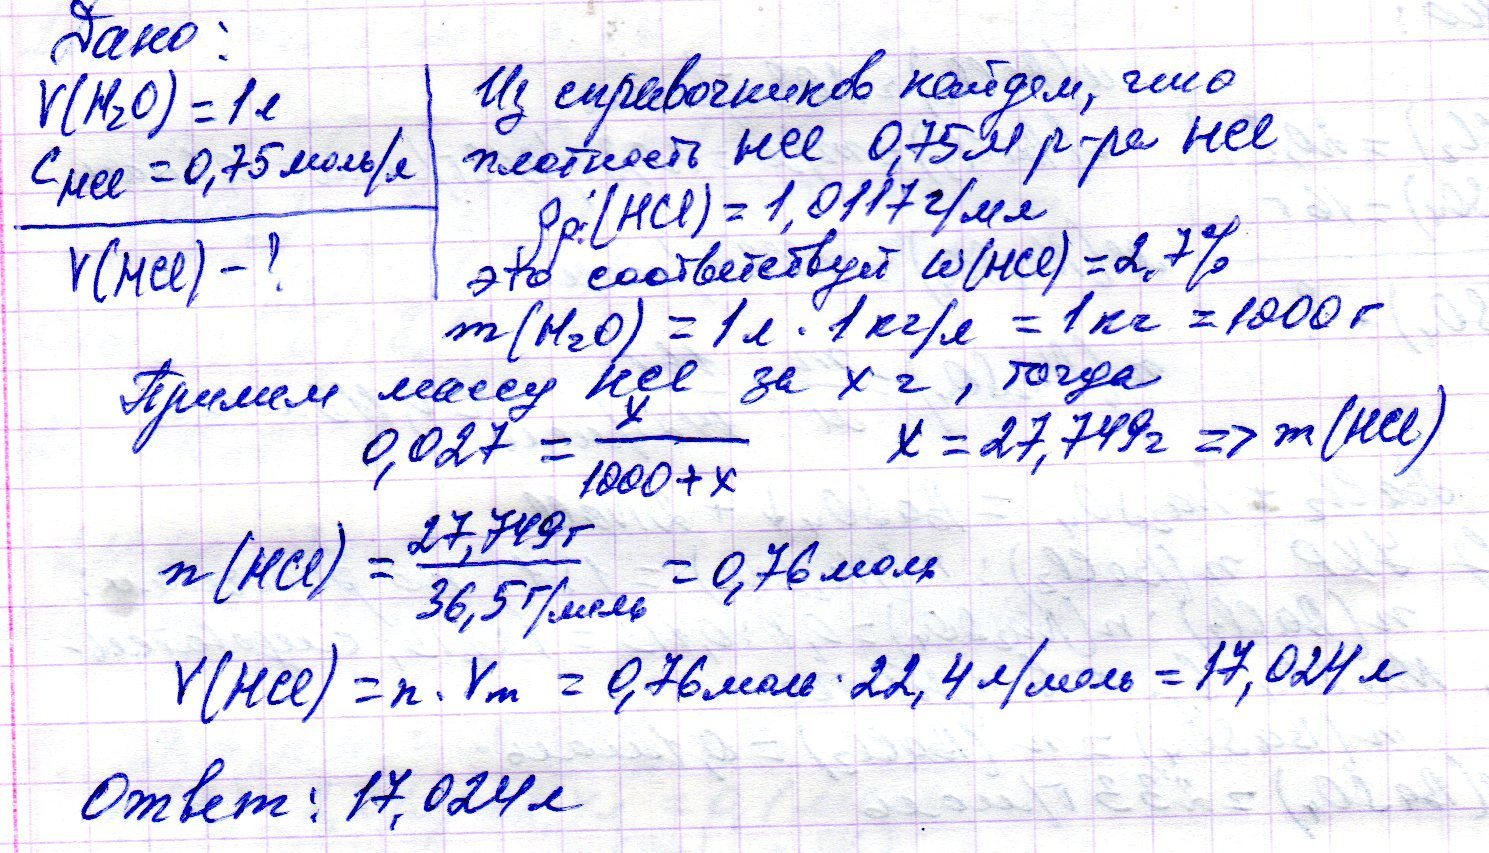 Дано:
V(H₂O) = 1 л
C_HCl = 0,75 моль/л
V(HCl) - ?
Из справочников найдем, что
плотность HCl 0,75М р-ра HCl
ρр.(HCl) = 1,0117 г/мл
это соответствует ω(HCl) = 2,7%
m(H₂O) = 1 л · 1 кг/л = 1 кг = 1000 г
Примем массу HCl за x г, тогда
0,027 = x / (1000 + x)     x = 27,749 г => m(HCl)
n(HCl) = 27,749 г / 36,5 г/моль = 0,76 моль
V(HCl) = n · Vm = 0,76 моль · 22,4 л/моль = 17,024 л
Ответ: 17,024 л